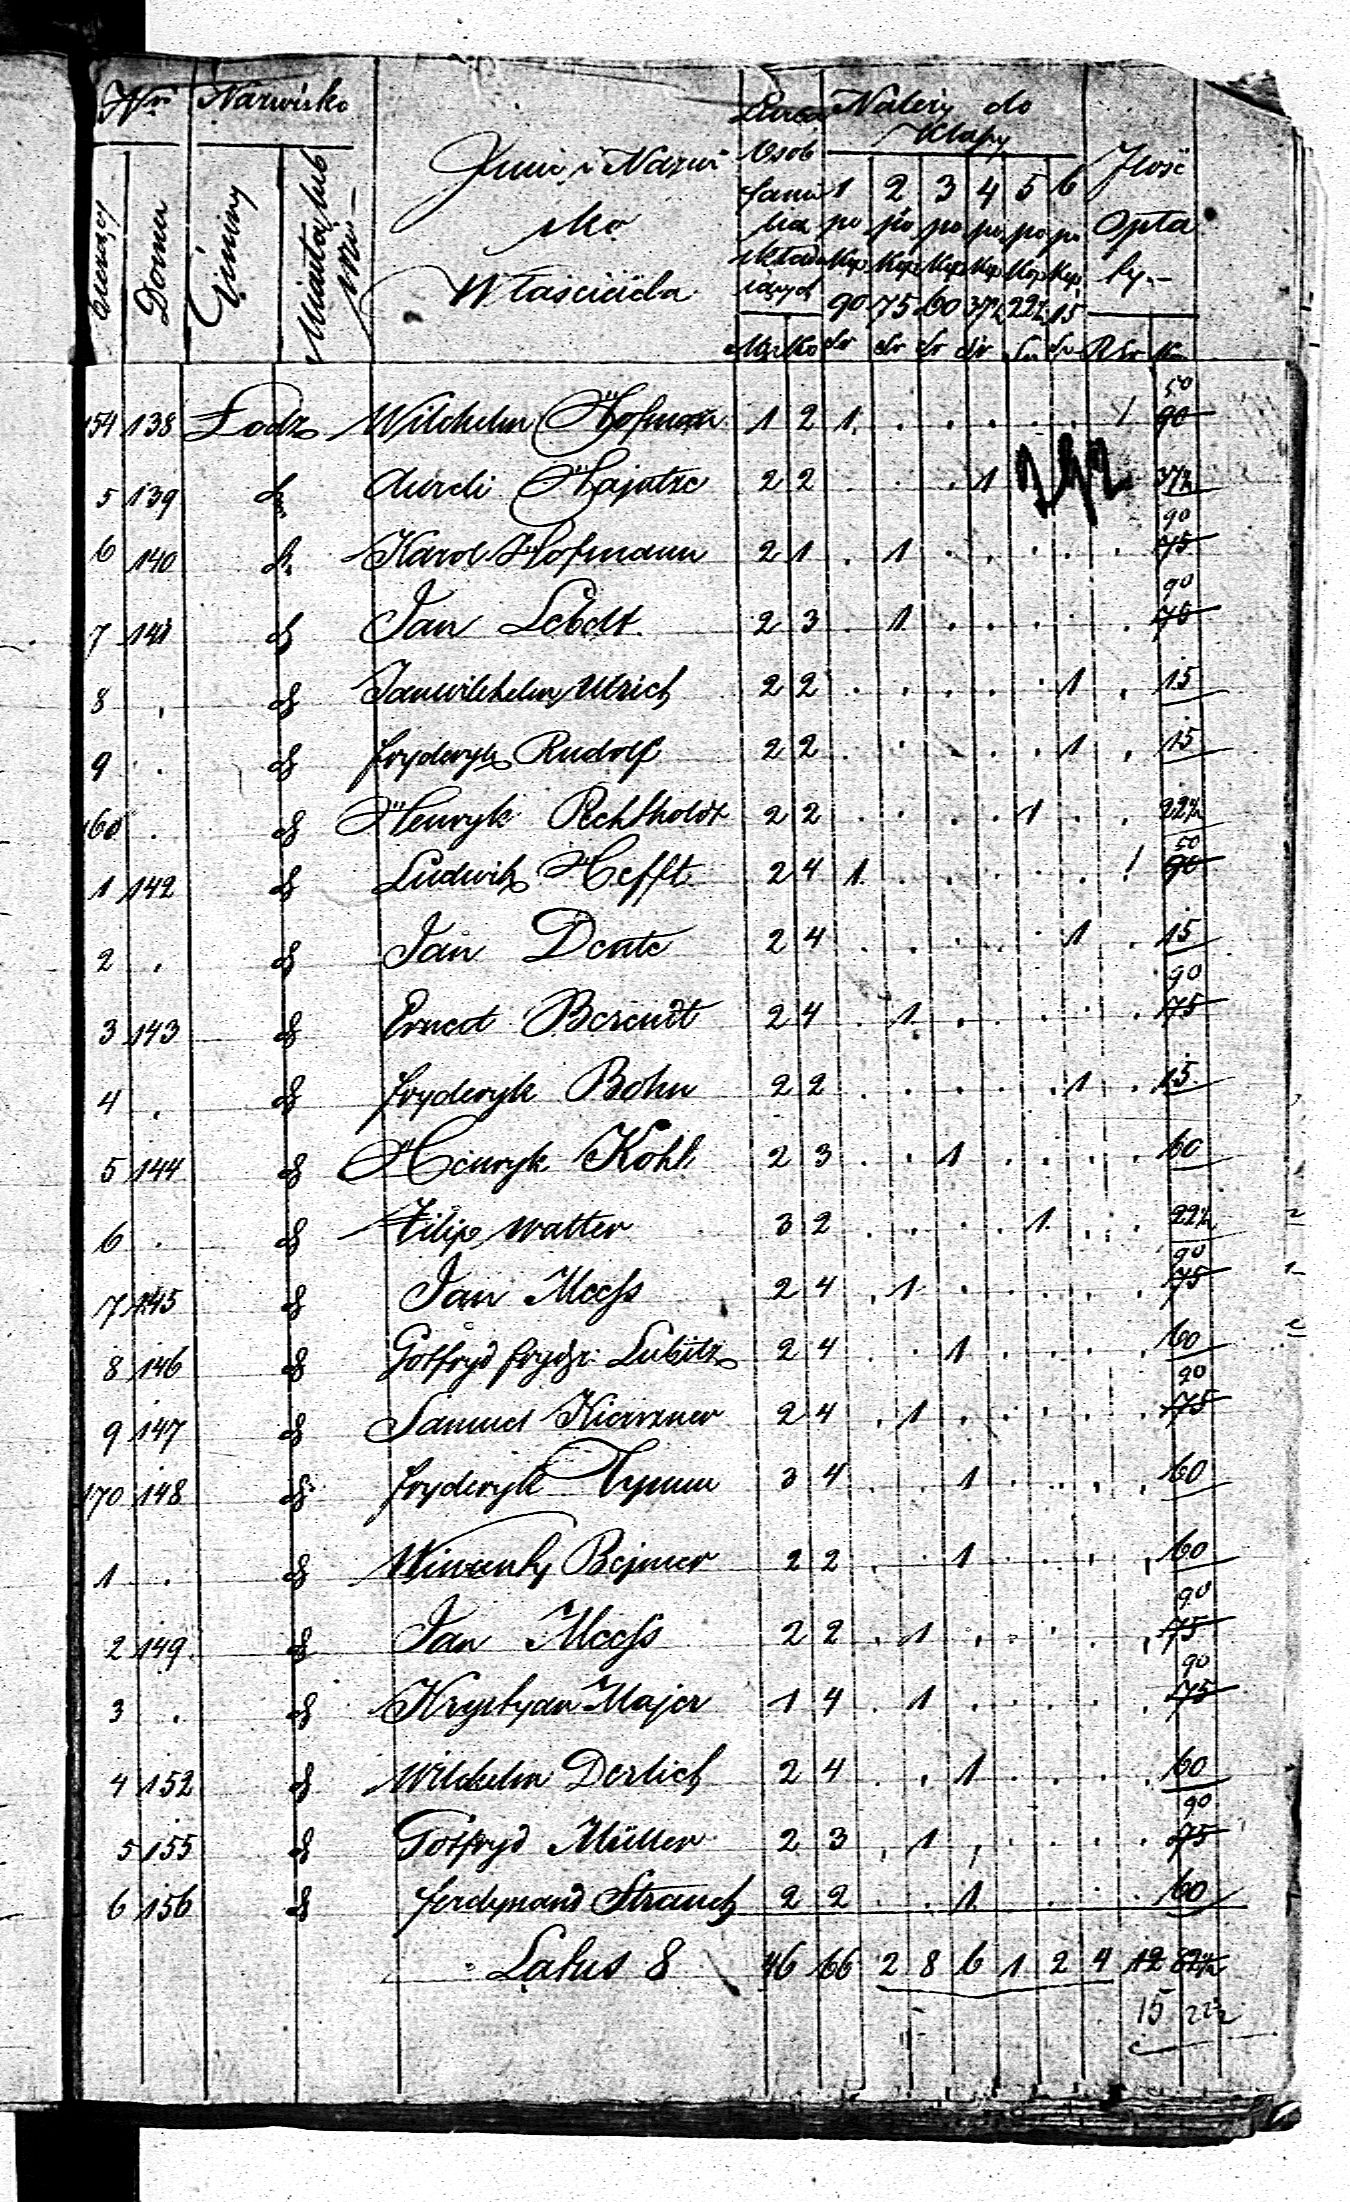 Nr Nazwisko Liczba Należy do
Klassy
bieżący Domu Gminy Miasta lub Wsi Jmie i Nazwi Osob Jlość
sko fami 1 2 3 4 5 6 Opła
Właściciela lią po po po po po po ty.-
składa Kop Kop Kop Kop Kop Kop
iących 90 75 60 37½ 22½ 15
Męz Ko Sr Sr Sr Sr Sr Sr RSr K
50
154 138 Łodz Wilchelm Hofman 1 2 1 . . . . . 1 90
5 139 d Aureli Hajntze 2 2 . . . 1 37½
90
6 140 d Karol Hofmann 2 1 . 1 . . . . . 75
90
7 141 d Jan Lebelt 2 3 . 1 . . . . . 75
8 . d Jan wilchelm Ulrich 2 2 . . . . . 1 . 15
9 . d fryderyk Rudolf 2 2 . . . . . 1 . 15
160 . d Henryk Pechtholdt 2 2 . . . . 1 . . 22½
50
1 142 d Ludwik Hefft 2 4 1 . . . . . 1 90
2 . d Jan Dente 2 4 . . . . . 1 . 15
90
3 143 d Ernest Berendt 2 4 . 1 . . . . . 75
4 . d fryderyk Bohn 2 2 . . . . . 1 . 15
5 144 d Henryk Kohl 2 3 . . 1 . . . . 60
6 . d Filip Walter 3 2 . . . . 1 . . 22½
90
7 145 d Jan Meess 2 4 . 1 . . . . . 75
8 146 d Gotfryd frydr: Lubitz 2 4 . . 1 . . . . 60
90
9 147 d Samuel Kierzner 2 4 . 1 . . . . . 75
170 148 d fryderyk Tymm 3 4 . . 1 . . . . 60
1 . d Wincenty Bejmer 2 2 . . 1 . . . . 60
90
2 149 d Jan Meess 2 2 . 1 . . . . . 75
90
3 . d Krystyan Majer 1 4 . 1 . . . . . 75
4 152 d Wilchelm Derlich 2 4 . . 1 . . . . 60
90
5 155 d Gotfryd Müller 2 3 . 1 . . . . . 75
6 156 d ferdynand Strauch 2 2 . . 1 . . . . 60
Latus 8 46 66 2 8 6 1 2 4 12 82½
15 22½